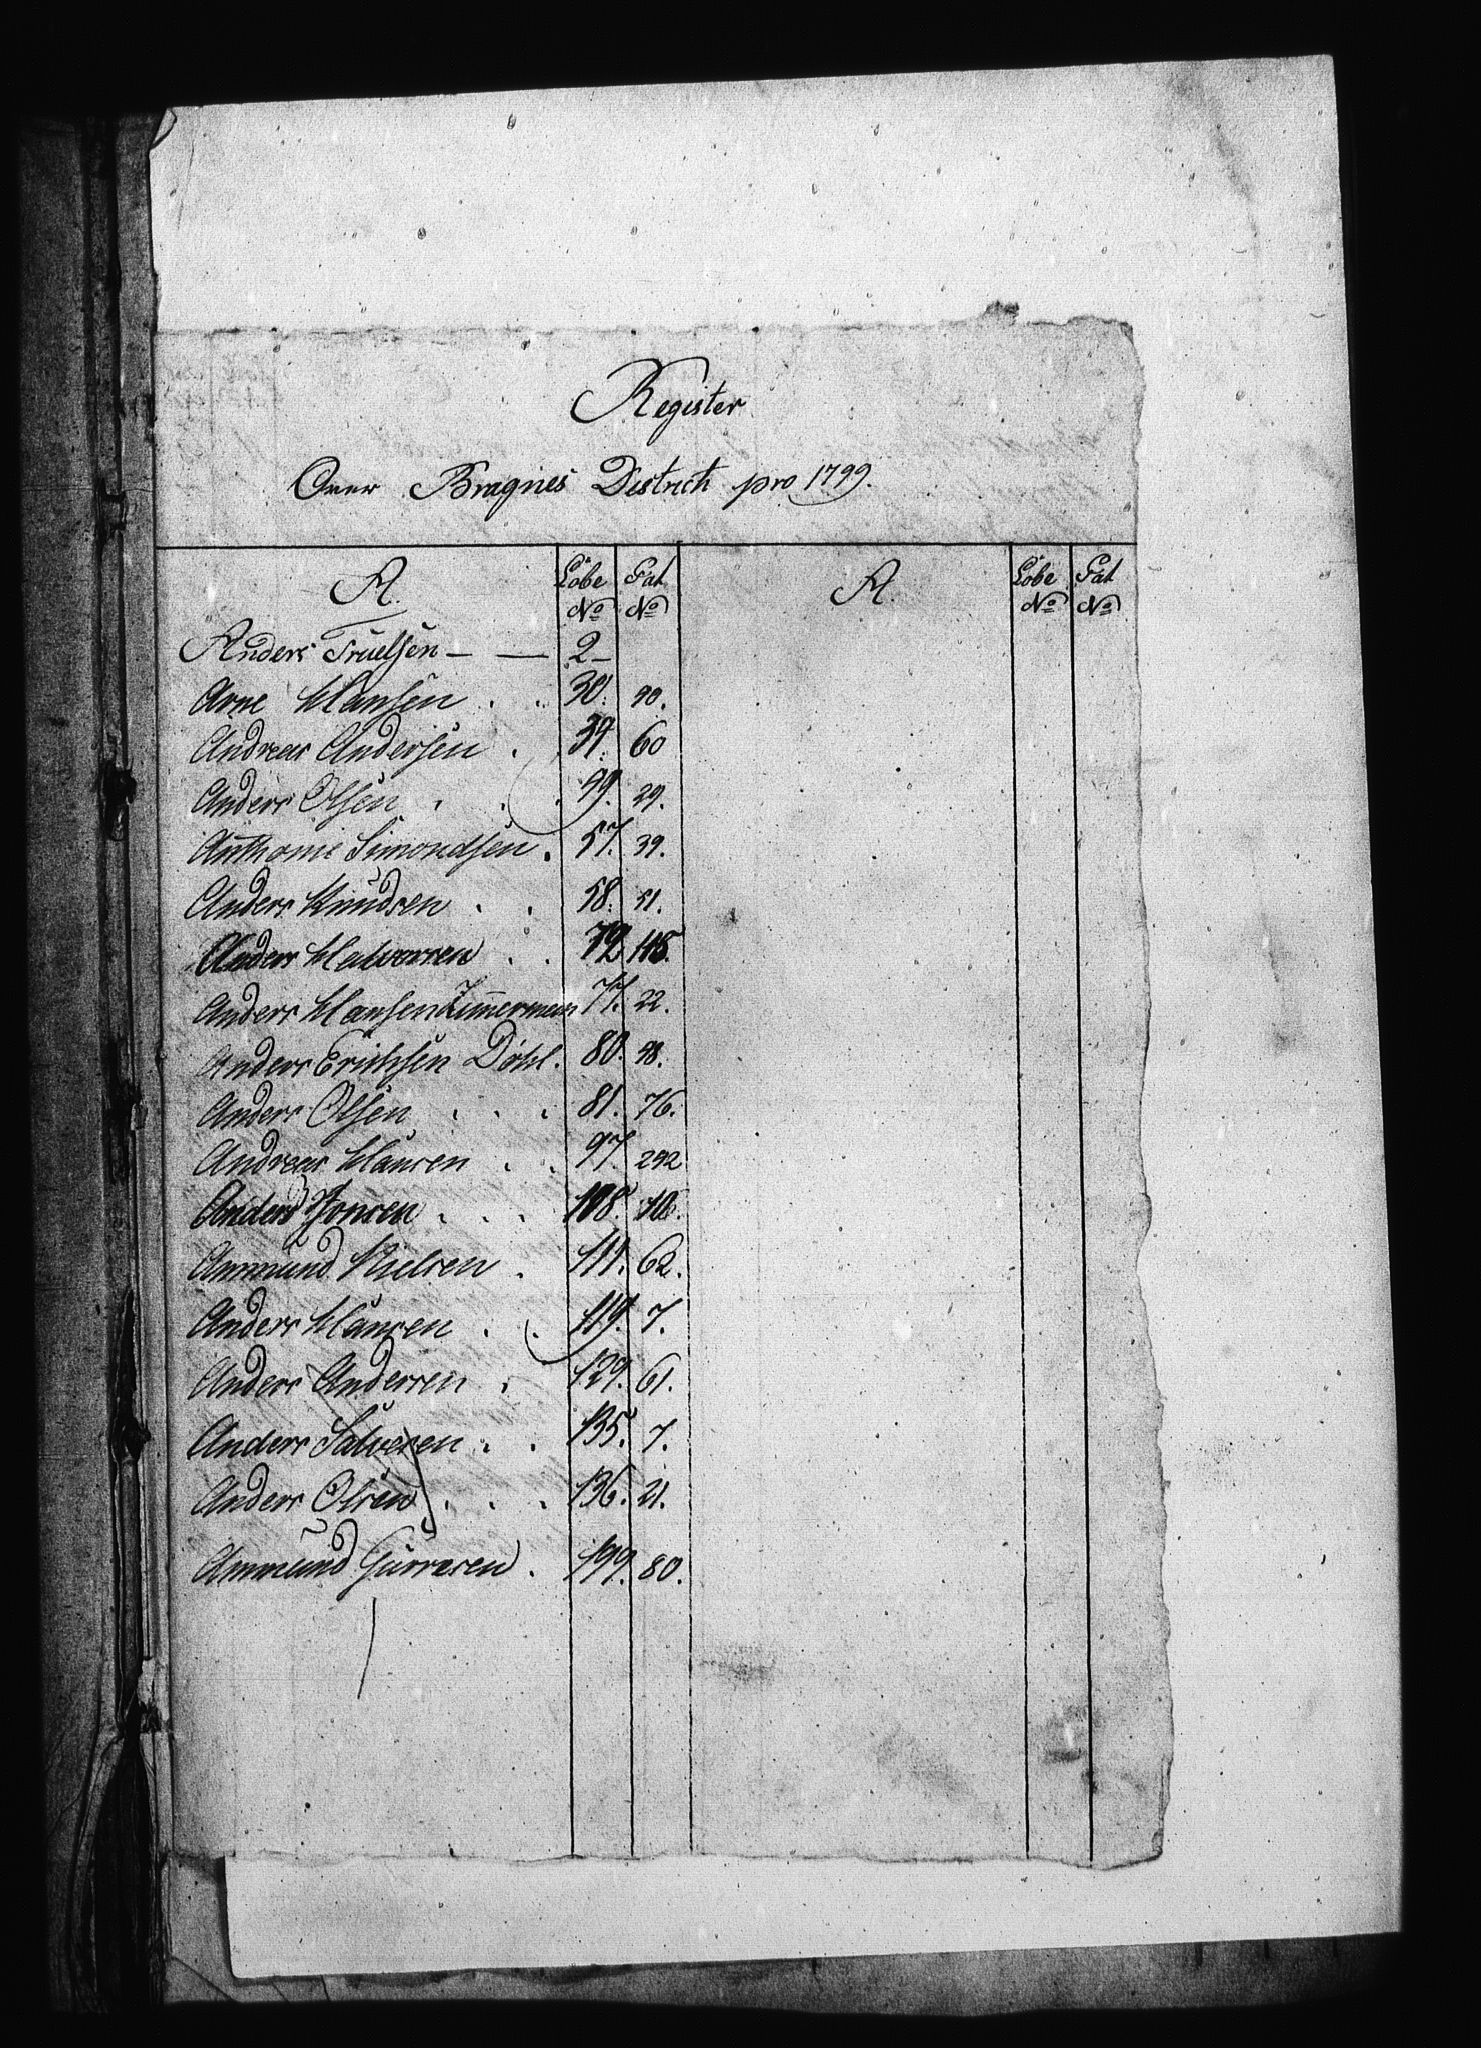 Register
Over Bragnes District pro 1799.
A. Løbe No Fat No A. Løbe No Fat No
Anders Truelsen — — 2 —
Arne Hansen . . 30. 90.
Andreas Andersen . 34. 60
Anders Olsen . . . 49. 29.
Anthonie Simondsen . 57. 39.
Anders Knudsen . . 58. 51.
Anders Halvorsen . . 72 148.
Anders Hansen Zimermann 77. 22.
Anders Erichsen Döhl. 80. 98.
Anders Olsen . . . 81. 76.
Andreas Hansen . . 97. 292
Anders Jonsen . . . 108. 106.
Ammund Nielsen . 111. 62.
Anders Hansen . . 119. 7.
Anders Andersen . 129. 61.
Anders Salvesen . . 135. 7.
Anders Olsen . . . 136. 21.
Ammund Gurresen . 199. 80.